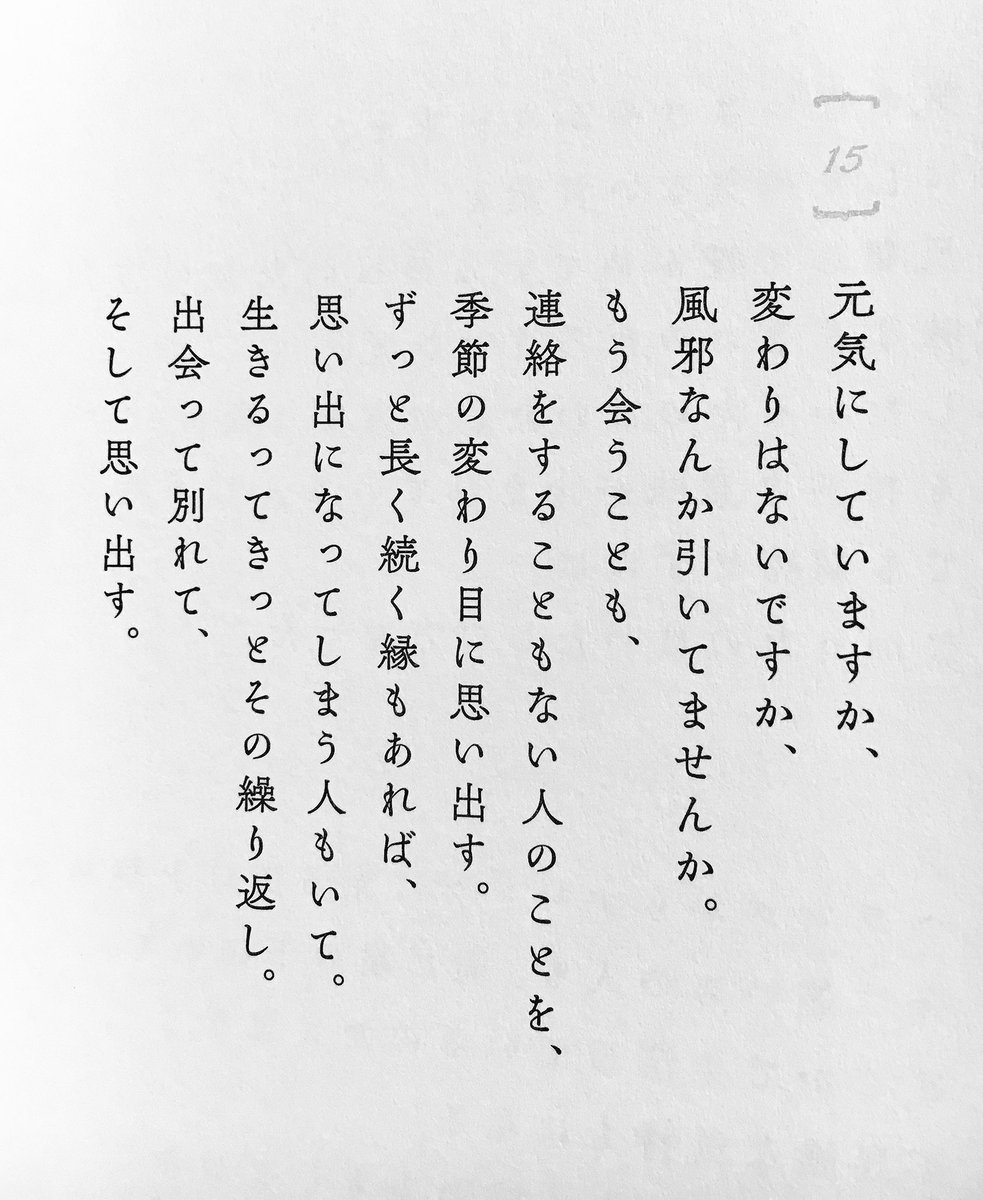 [15]
元気にしていますか、
変わりはないですか、
風邪なんか引いてませんか。
もう会うことも、
連絡をすることもない人のことを、
季節の変わり目に思い出す。
ずっと長く続く縁もあれば、
思い出になってしまう人もいて。
生きるってきっとその繰り返し。
出会って別れて、
そして思い出す。